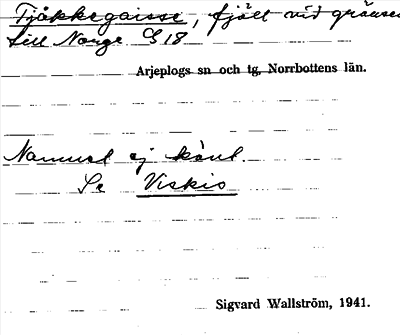 Tjåkkegaisse, fjäll vid gränsen
till Norge G 18
Arjeplogs sn och tg, Norrbottens län.
Namnet ej känt.
Se Viskis
Sigvard Wallström, 1941.